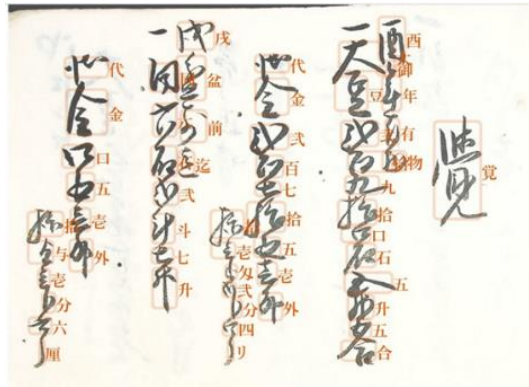 覚
酉御年有物
一大豆弐百九拾口石五升五合
代金弐百七拾五壱外
拾壱匁弐分四リ
戌盆前迄
一 弐斗七升
代金口五壱外
拾与壱分六厘